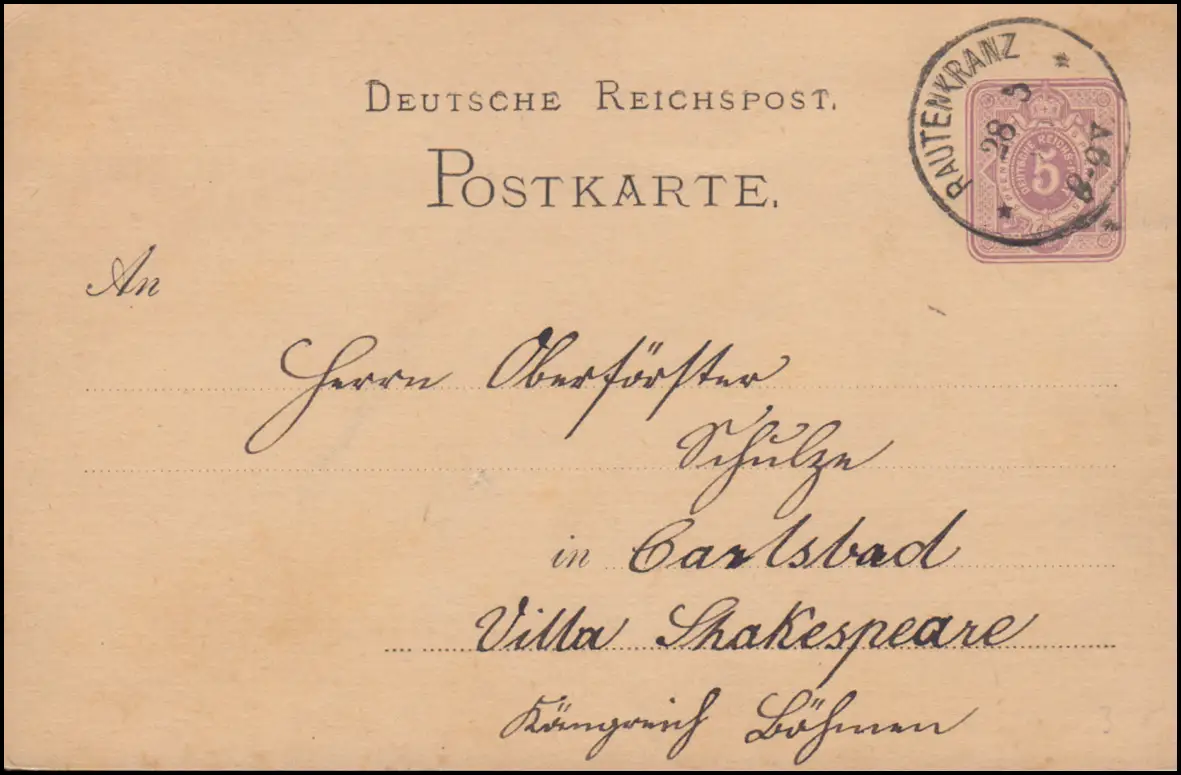 DEUTSCHE REICHSPOST.
POSTKARTE.
RAUTENKRANZ
28 3
8-9V
5
An
Herrn Oberförster
Schulze
in Carlsbad
Villa Shakespeare
Königreich Böhmen